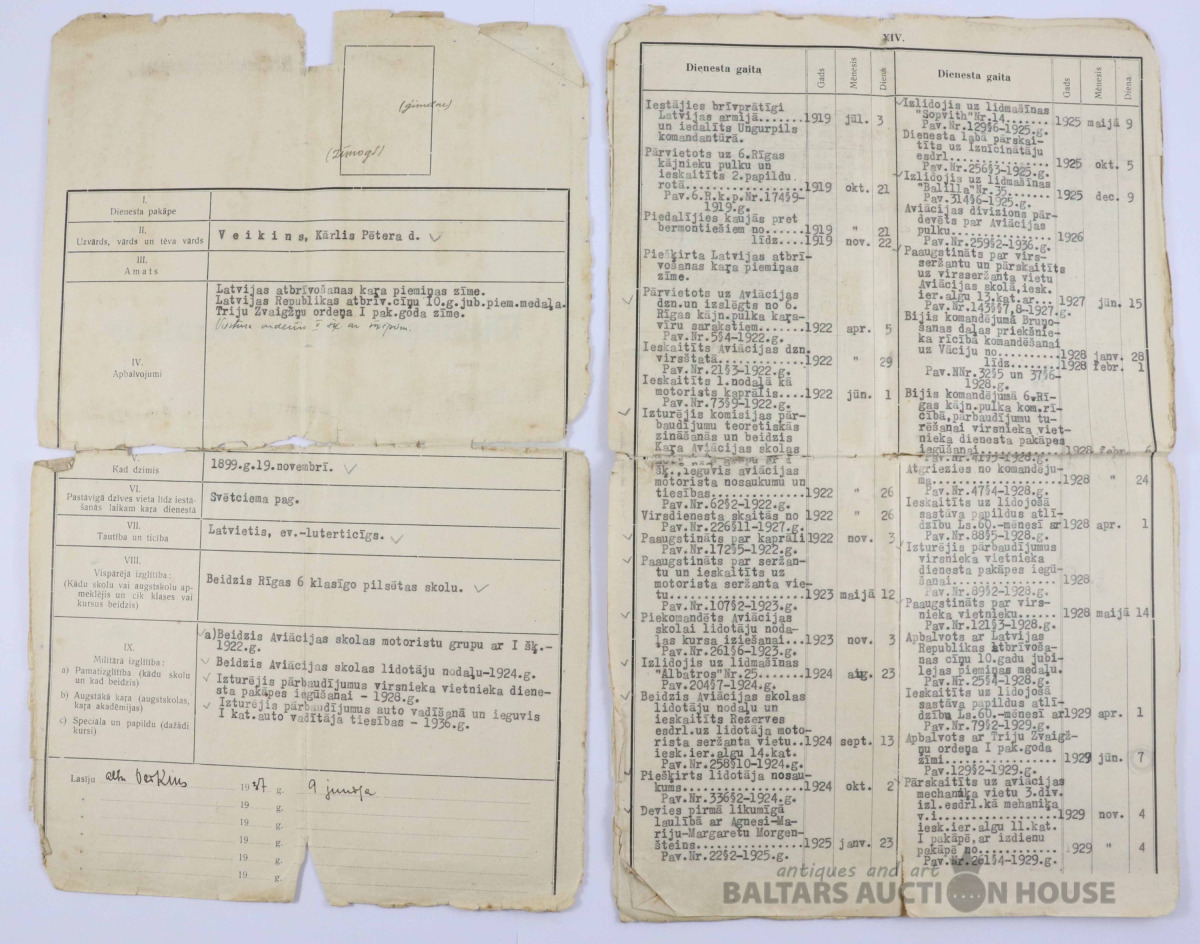 (ģimetne)
(zīmogs)
I.
Dienesta pakāpe
II.
Uzvārds, vārds un tēva vārds
Veikins, Kārlis Pētera d.
III.
Amats
Latvijas atbrīvošanas kaŗa piemiņas zīme.
Latvijas Republikas atbrīv.cīņu 10.g.jub.piem.medaļa.
Triju Zvaigžņu ordeņa I pak.goda zīme.
IV.
Apbalvojumi
V.
Kad dzimis
1899.g.19.novembrī.
VI.
Pastāvīgā dzīves vieta līdz iestā-
šanās laikam kaŗa dienestā
Svētciema pag.
VII.
Tautība un ticība
Latvietis, ev.-luterticīgs.
VIII.
Vispārējā izglītība:
(Kādu skolu vai augstskolu ap-
meklējis un cik klases vai
kursus beidzis)
Beidzis Rīgas 6 klasīgo pilsētas skolu.
IX.
Militārā izglītība:
a) Pamatizglītība (kādu skolu
un kad beidzis)
b) Augstākā kaŗa (augstskolas,
kaŗa akadēmijas)
c) Speciala un papildu (dažādi
kursi)
a)Beidzis Aviācijas skolas motoristu grupu ar I šķ.-
1922.g.
Beidzis Aviācijas skolas lidotāju nodaļu-1924.g.
Izturējis pārbaudījumus virsnieka vietnieka diene-
sta pakāpes iegūšanai - 1928.g.
Izturējis pārbaudījumus auto vadīšanā un ieguvis
I kat.auto vadītāja tiesības - 1936.g.
Lasīju
1937 g. 9 junija
19 g.
19 g.
19 g.
19 g.
19 g.
XIV.
Dienesta gaita Gads Mēnesis Diena
Iestājies brīvprātīgi
Latvijas armijā.......1919 jūl. 3
un iedalīts Ungurpils
komandantūrā.
Pārvietots uz 6.Rīgas
kājnieku pulku un
ieskaitīts 2.papildu
rotā..................1919 okt. 21
Pav.6.R.k.p.Nr.174§9-
1919.g.
Piedalījies kaujās pret
bermontiešiem no......1919 " 21
līdz....1919 nov. 22
Piešķirta Latvijas atbrī-
vošanas kaŗa piemiņas
zīme.
Pārvietots uz Aviācijas
dzn.un izslēgts no 6.
Rīgas kājn.pulka kaŗa-
vīru sarakstiem.......1922 apr. 5
Pav.Nr.5§4-1922.g.
Ieskaitīts Aviācijas dzn.
virsštatā.............1922 " 29
Pav.Nr.21§3-1922.g.
Ieskaitīts 1.nodaļā kā
motorists kaprālis....1922 jūn. 1
Pav.Nr.73§9-1922.g.
Izturējis komisijas pār-
baudījumu teorētiskās
zināšanās un beidzis
Kaŗa Aviācijas skolas
šķ.,ieguvis aviācijas
motorista nosaukumu un
tiesības..............1922 " 26
Pav.Nr.62§2-1922.g.
Virsdienestā skaitās no 1922 " 26
Pav.Nr.226§11-1927.g.
Paaugstināts par kaprāli1922 nov. 3
Pav.Nr.172§5-1922.g.
Paaugstināts par seržan-
tu un ieskaitīts uz
motorista seržanta vie-
tu....................1923 maijā 12
Pav.Nr.107§2-1923.g.
Piekomandēts Aviācijas
skolai lidotāju noda-
ļas kursa iziešanai...1923 nov. 3
Pav.Nr.261§6-1923.g.
Izlidojis uz lidmašīnas
"Albatros"Nr.25.......1924 aug. 23
Pav.204§7-1924.g.
Beidzis Aviācijas skolas
lidotāju nodaļu un
ieskaitīts Rezerves
esdrl.uz lidotāja moto-
rista seržanta vietu..1924 sept. 13
iesk.ier.algu 14.kat.
Pav.Nr.258§10-1924.g.
Piešķirts lidotāja nosau-
kums..................1924 okt. 2
Pav.Nr.336§2-1924.g.
Devies pirmā likumīgā
laulībā ar Agnesi-Ma-
riju-Margaretu Morgen-
šteins................1925 janv. 23
Pav.Nr.22§2-1925.g.
Dienesta gaita Gads Mēnesis Diena.
Izlidojis uz lidmašīnas
"Sopvith"Nr.14....... 1925 maijā 9
Pav.Nr.129§6-1925.g.
Dienesta labā pārskai-
tīts uz Iznīcinātāju
esdrl................ 1925 okt. 5
Pav.Nr.256§3-1925.g.
Izlidojis uz lidmašīnas
"Balilla"Nr.35....... 1925 dec. 9
Pav.314§6-1925.g.
Aviācijas divizions pār-
devēts par Aviācijas
pulku................ 1926
Pav.Nr.259§2-1936.g.
Paaugstināts par virs-
seržantu un pārskaitīts
uz virsseržanta vietu
Aviācijas skolā,iesk.
ier.algu 13.kat.ar... 1927 jūn. 15
Pav.Nr.143§§7,8-1927.g.
Bijis komandējumā Bruņo-
šanas daļas priekšnie-
ka rīcībā komandēšanai
uz Vāciju no..........1928 janv. 28
līdz..1928 febr. 1
Pav.NNr.32§5 un 37§6-
1928.g.
Bijis komandējumā 6.Rī-
gas kājn.pulka kom.rī-
cībā,pārbaudījumu tu-
rēšanai virsnieka viet-
nieka dienesta pakāpes
iegūšanai.............1928 febr. 6
Atgriezies no komandēju-
ma....................1928 " 24
Pav.Nr.47§4-1928.g.
Ieskaitīts uz lidojošā
sastāva papildus atlī-
dzību Ls.60.-mēnesī ar1928 apr. 1
Pav.Nr.88§5-1928.g.
Izturējis pārbaudījumus
virsnieka vietnieka
dienesta pakāpes iegū-
šanai.................1928
Pav.Nr.89§2-1928.g.
Paaugstināts par virs-
nieka vietnieku.......1928 maijā 14
Pav.Nr.121§3-1928.g.
Apbalvots ar Latvijas
Republikas atbrīvoša-
nas cīņu 10.gadu jubi-
lejas piemiņas medaļu.
Pav.Nr.25§4-1928.g.
Ieskaitīts uz lidojošā
sastāva papildus atlī-
dzību Ls.60.-mēnesī ar1929 apr. 1
Pav.Nr.79§2-1929.g.
Apbalvots ar Triju Zvaigž-
ņu ordeņa I pak.goda
zīmi..................1929 jūn. 7
Pav.129§2-1929.g.
Pārskaitīts uz aviācijas
mechaniķa vietu 3.div.
izl.esdrl.kā mehaniķa
v.i...................1929 nov. 4
iesk.ier.algu 11.kat.
I pakāpē,ar izdienu
pakāpē no.............1929 " 4
Pav.Nr.261§4-1929.g.
antiques and art
BALTARS AUCTION HOUSE